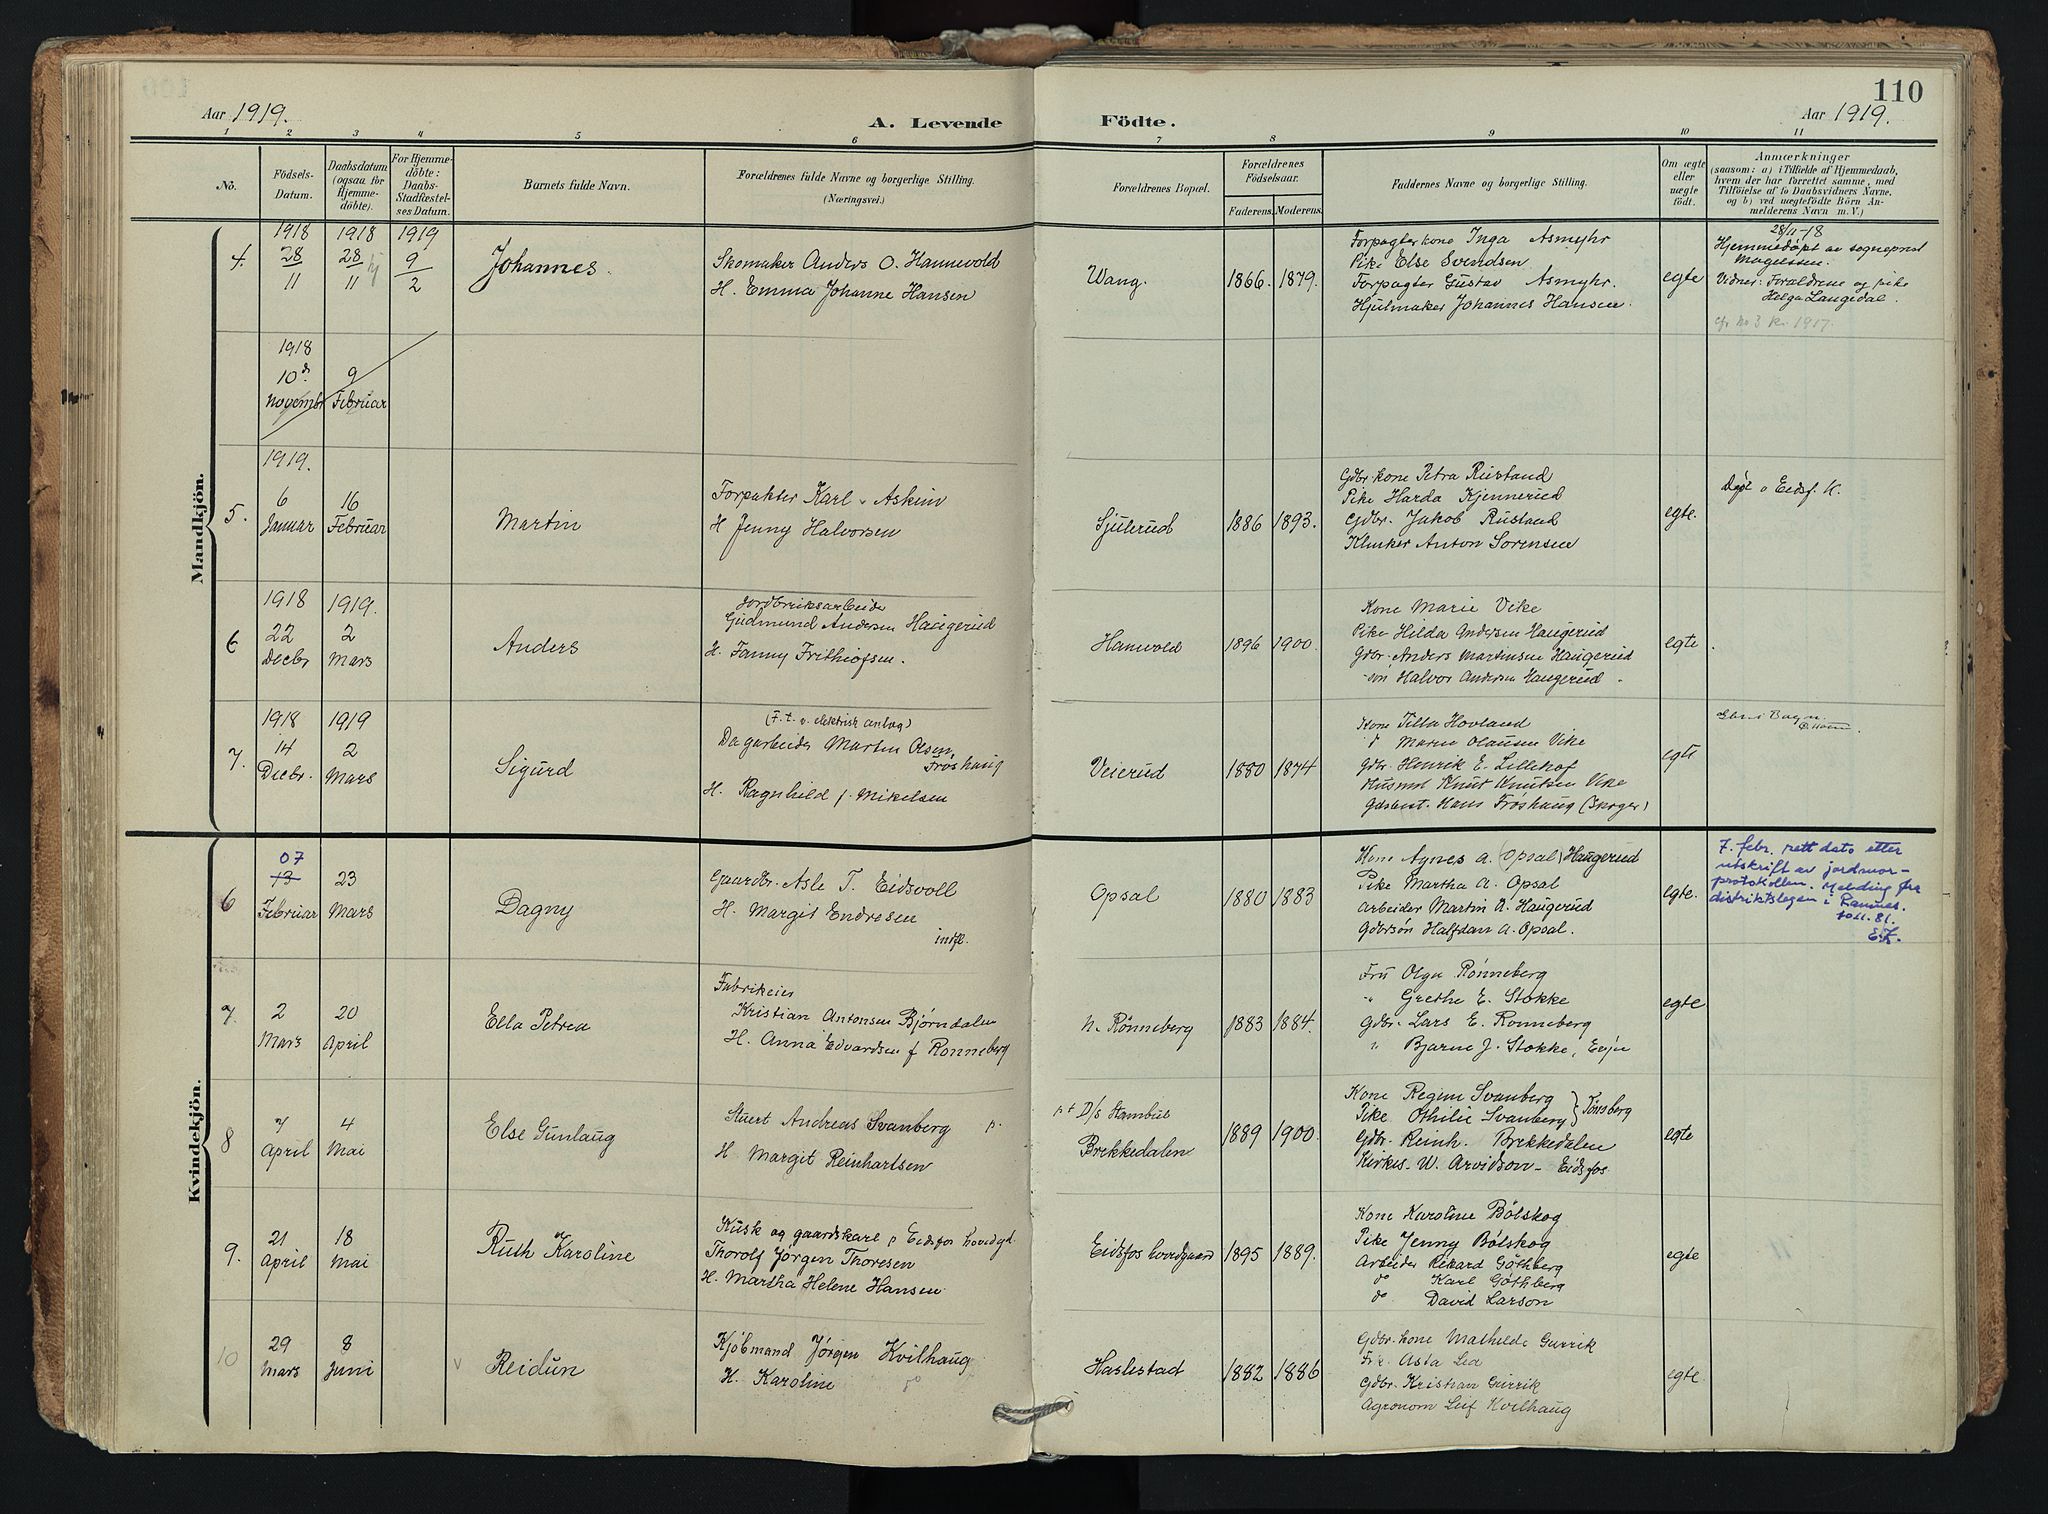 110
Aar 1919.
A. Levende Födte.
Aar 1919.
1 2 3 4 5 6 7 8 9 10 11
No.
Födsels-
Datum.
Daabsdatum
(ogsaa for
Hjemme-
döbte).
For Hjemme-
döbte:
Daabs-
Stadfæstel-
ses Datum.
Barnets fulde Navn.
Forældrenes fulde Navne og borgerlige Stilling.
(Næringsvei.)
Forældrenes Bopæl.
Forældrenes
Födselsaar.
Faderens. Moderens.
Faddernes Navne og borgerlige Stilling.
Om ægte
eller
uægte
födt.
Anmærkninger
(saasom: a) i Tilfælde af Hjemmedaab,
hvem der har forrettet samme, med
Tilföielse af to Daabsvidners Navne,
og b) ved uægtefödte Börn An-
melderens Navn m. V.)
Mandkjön.
4.
1918
28
11
1918
28
11
hj
1919
9
2
Johannes.
Skomaker Anders O. Hannevold
H. Emma Johanne Hansen
Wang.
1866. 1879.
Forpagterkone Inga Asmyhr
Pike Else Svendsen
Forpagter Gustav Asmyhr.
Hjulmaker Johannes Hansen.
egte
28/11-18
Hjemmedøpt av sogneprest
Magelssen.
Vidner: Forældrene og pike
Helga Langedal.
cfr No 3 kv. 1917.
1918
10de
novembr
9
Februar
5.
1919.
6
Januar
16
Februar
Martin
Forpakter Karl Askim
H Jenny Halvorsen
Sjulerud
1886 1893.
Gdbr kone Petra Rustand
Pike Harda Kjennerud
Gdbr. Jakob Rustand
Klinker Anton Sorensen
egte.
Døpt i Eidsf. K.
6
1918
22
Decbr
1919.
2
Mars
Anders
Jordbruksarbeider
Gudmund Andersen Haugerud
H. Fanny Frithiofsen.
Hanevold
1896 1900.
Kone Marie Vike
Pike Hilda Andersen Haugerud
Gdbr. Anders Martinsen Haugerud
søn Halvor Andersen Haugerud.
egte.
7.
1918
14
Decbr.
1919
2
Mars
Sigurd
(F. t. v. elektrisk anlæg)
Dagarbeider Martin Olsen
Frøshaug
H. Ragnhild f. Mikelsen
Veierud
1880 1874
Kone Tilla Hovland
" Marie Olausen Vike
Gdbr. Henrik E. Lillehof
Husmd Knut Knutsen Vike
Gdsbest. Hans Frøshaug (Skoger)
egte
Kvindekjön.
6
07
13
Februar
23
Mars
Dagny
Gaardbr. Asle T. Eidsvoll
H. Margit Endresen
indfl.
Opsal
1880 1883
Kone Agnes A. (Opsal) Haugerud
Pike Martha A. Opsal
Arbeider Martin A. Haugerud
Gdbrsøn Halfdan A. Opsal.
egte.
7. febr. rett dato etter
utskrift av jordmor-
protokollen. Melding fra
distriktslegen i Ramnes.
10.11.81.
E.K.
7.
2
Mars
20
April
Ella Petrea
Fabrikeier
Kristian Antonsen Bjørndalen
H. Anna Edvardsen f Ronneberg
n. Rønneberg
1883 1884.
Fru Olga Rønneberg
" Grethe E. Stokke
Gdbr. Lars E. Ronneberg
" Bjarne J. Stokke,
egte
8
7
April
4
Mai
Else Gunlaug
Stuert Andreas Svanberg p.
H. Margit Reinhartsen
pt D/s Stambul
Brekkedalen
1889 1900.
Kone Regine Svanberg
Pike Othilie Svanberg } Tønsberg
Gdbr. Reinh. Brekkedalen
Kirkes. W. Arvidson - Eidsfos
egte
9.
21
April
18
Mai
Ruth Karoline
Kusk og gaardskarl p Eidsfos hovedgd.
Thorolf Jørgen Thoresen
H. Martha Helene Hansen
Eidsfos hovedgaard
1895 1889.
Kone Karoline Bølskog
Pike Jenny Bølskog
Arbeider Rikard Göthberg
do Karl Göthberg
do David Larson
egte
10
29
Mars
8
Juni
v
Reidun
Kjöbmand Jørgen Kvilhaug
H. Karoline do
Haslestad
1882 1886
Gdbr. kone Mathilde Gurrik
Frk. Asta Lea
Gdbr. Kristian Gurrik
Agronom Leif Kvilhaug
egte.